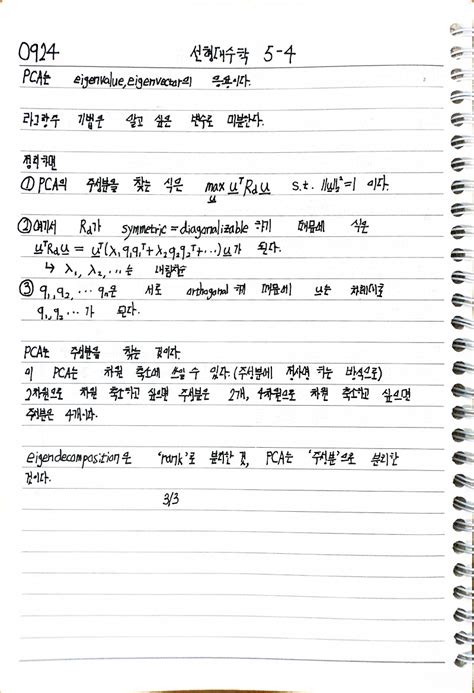 0924 선형대수학 5-4
PCA는 eigenvalue, eigenvector의 응용이다.
라그랑주 기법은 알고 싶은 변수로 미분한다.
정리하면
① PCA의 주성분을 찾는 식은 max u uᵀRdu s.t. ||u||₂²=1 이다.
② 여기서 Rd가 symmetric = diagonalizable 하기 때문에 식은
uᵀRdu = uᵀ(λ₁q₁q₁ᵀ+λ₂q₂q₂ᵀ+...)u가 된다.
↳ λ₁, λ₂, ...는 내림차순
③ q₁, q₂, ... qn은 서로 orthogonal 하기 때문에 u는 차례대로
q₁, q₂ ... 가 된다.
PCA는 주성분을 찾는 것이다.
이 PCA는 차원 축소에 쓰일 수 있다. (주성분에 정사영 하는 방식으로)
2차원으로 차원 축소하고 싶으면 주성분은 2개, 4차원으로 차원 축소하고 싶으면
주성분은 4개이다.
eigendecomposition은 'rank'로 분리한 것, PCA는 '주성분'으로 분리한
것이다.
3/3